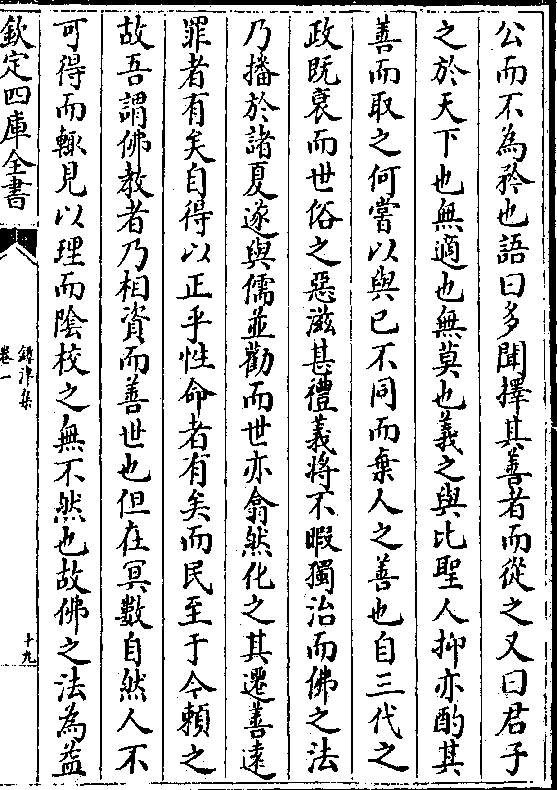 公而不為矜也語曰多聞擇其善者而從之又曰君子
之於天下也無適也無莫也義之與比聖人抑亦酌其
善而取之何嘗以與已不同而棄人之善也自三代之
政既衰而世俗之惡滋甚禮義將不暇獨治而佛之法
乃播於諸夏遂與儒並勸而世亦翕然化之其遷善逺
罪者有矣自得以正乎性命者有矣而民至于今頼之
故吾謂佛教者乃相資而善世也但在冥數自然人不
可得而輙見以理而陰校之無不然也故佛之法為益
欽定四庫全書
鐔津集
卷一
十九